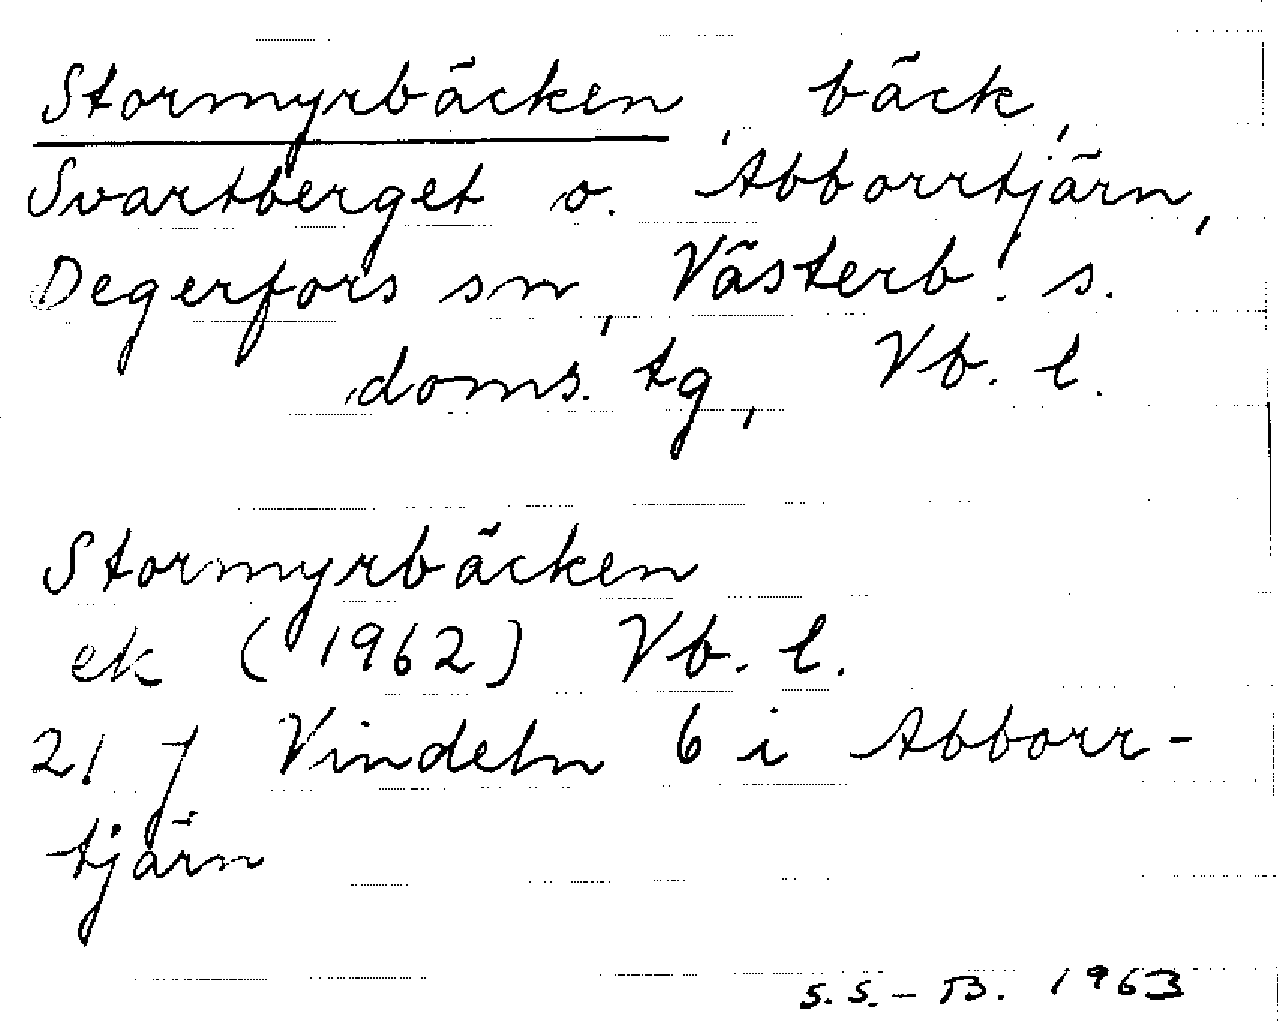 Stormyrbäcken, bäck,
Svartberget o. Abborrtjärn,
Degerfors sn, Västerb. s.
doms. tg, Vb. l.
Stormyrbäcken
ek (1962) Vb. l.
21 J Vindeln 6 i Abborr-
tjärn
S. S. - B. 1963